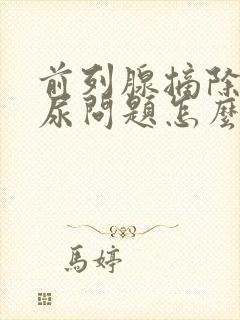 前列腺摘除
尿問題怎麼
馬婷